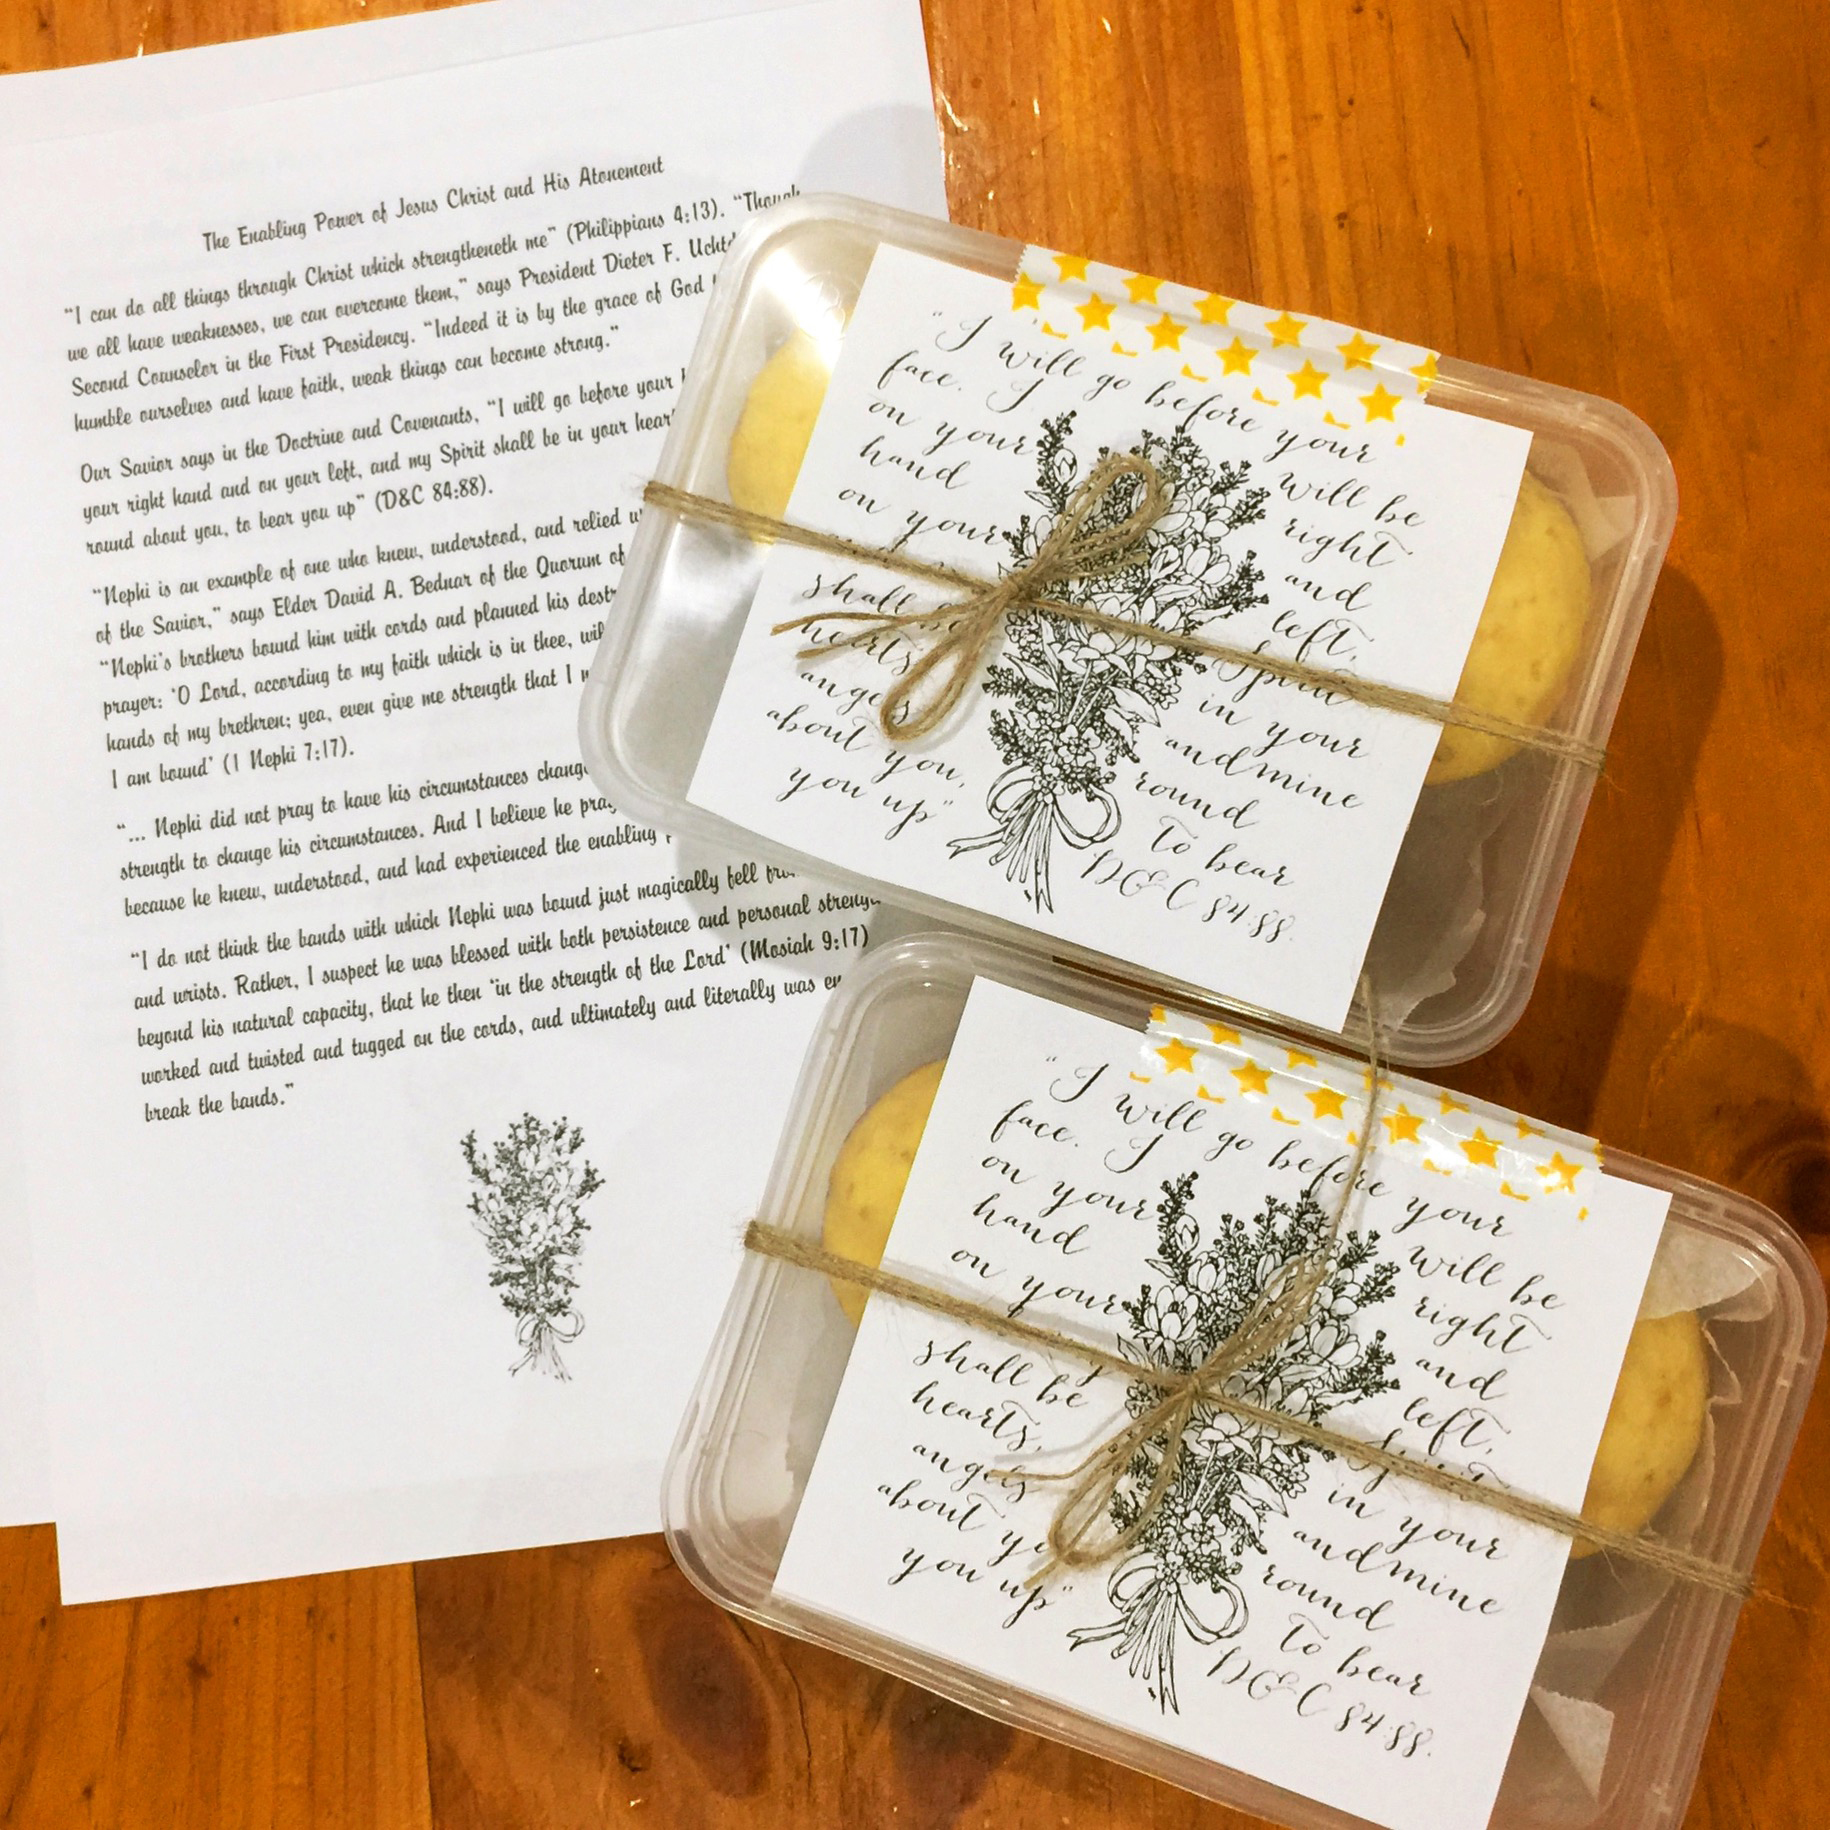 The Enabling Power of Jesus Christ and His Atonement
"I can do all things through Christ which strengtheneth me" (Philippians 4:13). "Though
we all have weaknesses, we can overcome them," says President Dieter F.
Second Counselor in the First Presidency. "Indeed it is by the grace of God
humble ourselves and have faith, weak things can become strong."
Our Savior says in the Doctrine and Covenants, "I will go before your
your right hand and on your left, and my Spirit shall be in your
round about you, to bear you up" (D&C 84:88).
"Nephi is an example of one who knew, understood, and relied
of the Savior," says Elder David A. Bednar of the Quorum of
"Nephi's brothers bound him with cords and planned his
prayer: 'O Lord, according to my faith which is in thee,
hands of my brethren; yea, even give me strength that I
I am bound' (1 Nephi 7:17).
"... Nephi did not pray to have his circumstances
strength to change his circumstances. And I believe he
because he knew, understood, and had experienced the enabling
"I do not think the bands with which Nephi was bound just magically fell
and wrists. Rather, I suspect he was blessed with both persistence and personal
beyond his natural capacity, that he then 'in the strength of the Lord' (Mosiah 9:17)
worked and twisted and tugged on the cords, and ultimately and literally was
break the bands."
"I will go before your
face. I will be
on your right
hand and
on your left,
Spirit
shall be in your
hearts, and mine
angels round
about you, to bear
you up" D&C 84:88.
"I will go before your
face. I will be
on your right
hand and
on your left,
Spirit
shall be in your
hearts, and mine
angels round
about to bear
you up" D&C 84:88.